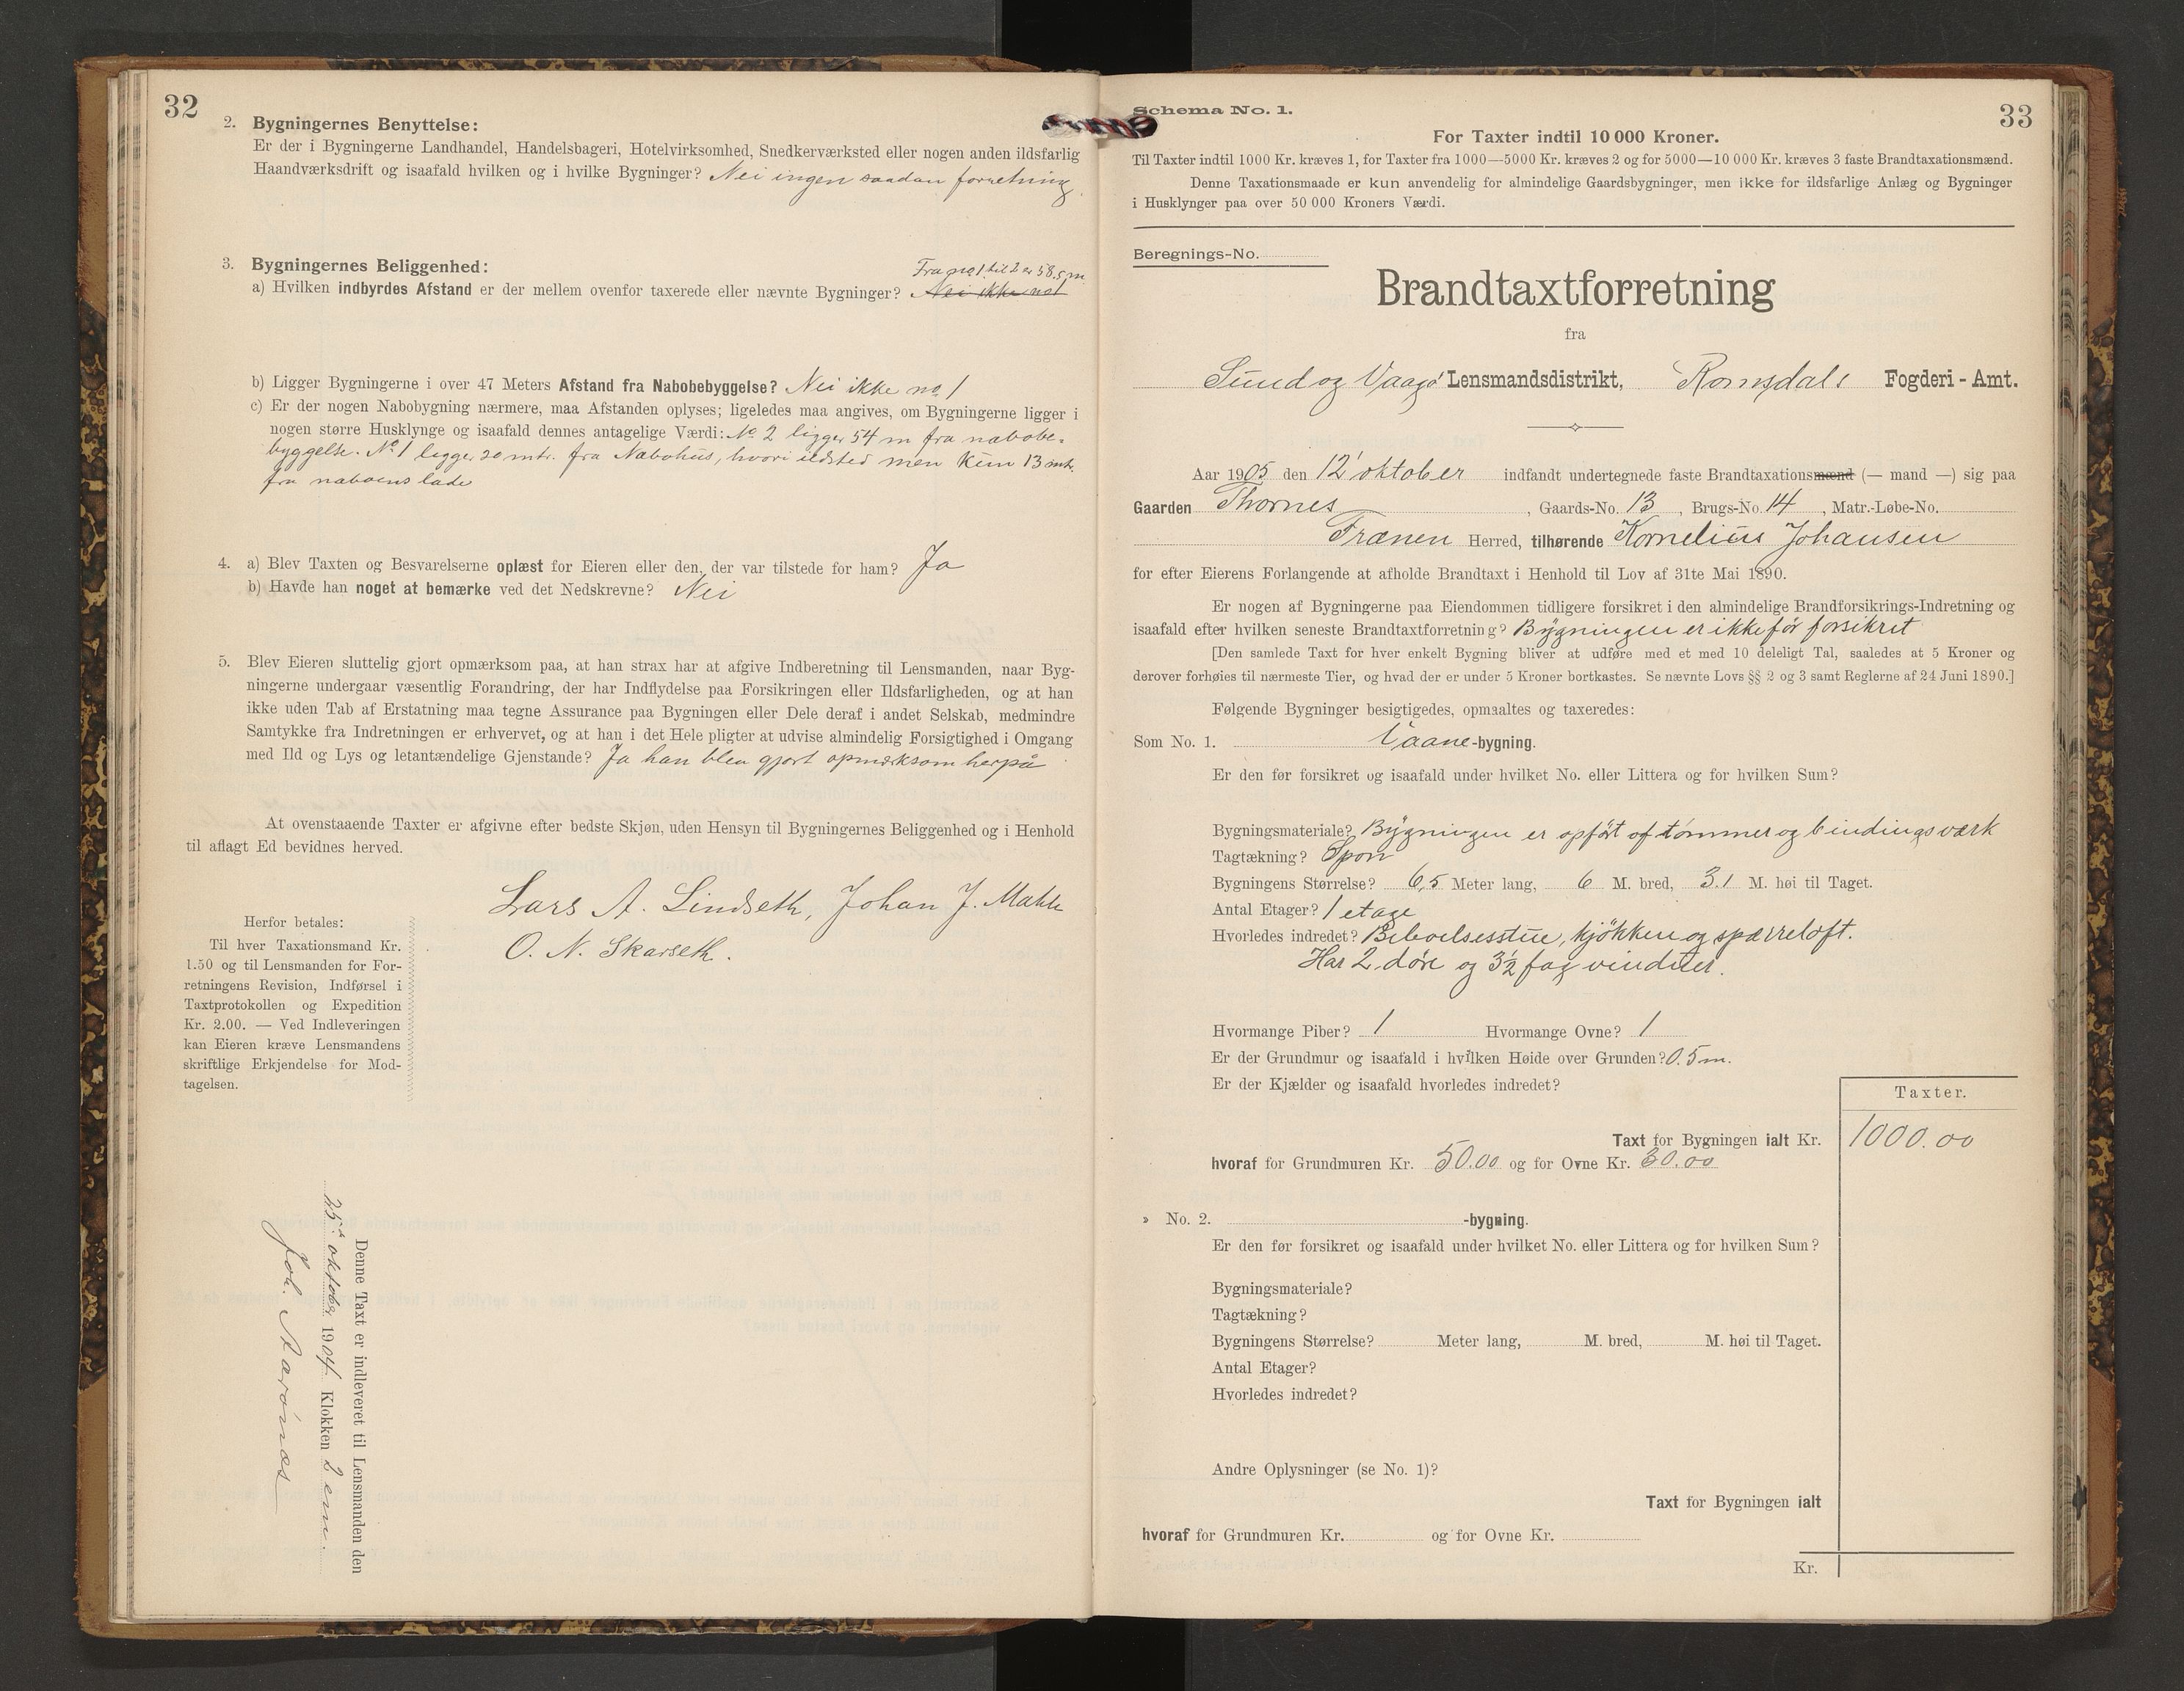 32
2. Bygningernes Benyttelse:
Er der i Bygningerne Landhandel, Handelsbageri, Hotelvirksomhed, Snedkerværksted eller nogen anden ildsfarlig
Haandværksdrift og isaafald hvilken og i hvilke Bygninger? Nei ingen saadan forretning.
3. Bygningernes Beliggenhed:
Fra no 1 til 2 er 58.5 m
a) Hvilken indbyrdes Afstand er der mellem ovenfor taxerede eller nævnte Bygninger? Nei ikke no 1
b) Ligger Bygningerne i over 47 Meters Afstand fra Nabobebyggelse? Nei ikke no 1
c) Er der nogen Nabobygning nærmere, maa Afstanden oplyses; ligeledes maa angives, om Bygningerne ligger i
nogen større Husklynge og isaafald dennes antagelige Værdi: No 2 ligger 54 m fra nabobe-
byggelse. No 1 ligger 20 mtr. fra Nabohus, hvori ildsted men kun 13 mtr.
fra naboens lade
4. a) Blev Taxten og Besvarelserne oplæst for Eieren eller den, der var tilstede for ham? Ja
b) Havde han noget at bemærke ved det Nedskrevne? Nei
5. Blev Eieren sluttelig gjort opmærksom paa, at han strax har at afgive Indberetning til Lensmanden, naar Byg-
ningerne undergaar væsentlig Forandring, der har Indflydelse paa Forsikringen eller Ildsfarligheden, og at han
ikke uden Tab af Erstatning maa tegne Assurance paa Bygningen eller Dele deraf i andet Selskab, medmindre
Samtykke fra Indretningen er erhvervet, og at han i det Hele pligter at udvise almindelig Forsigtighed i Omgang
med Ild og Lys og letantændelige Gjenstande? Ja han blev gjort opmærksom herpå
At ovenstaaende Taxter er afgivne efter bedste Skjøn, uden Hensyn til Bygningernes Beliggenhed og i Henhold
til aflagt Ed bevidnes herved.
Lars A. Lindseth, Johan J. Mahle
O. N. Skarseth.
Herfor betales:
Til hver Taxationsmand Kr.
1.50 og til Lensmanden for For-
retningens Revision, Indførsel i
Taxtprotokollen og Expedition
Kr. 2.00. — Ved Indleveringen
kan Eieren kræve Lensmandens
skriftlige Erkjendelse for Mod-
tagelsen.
Denne Taxt er indleveret til Lensmanden den
25de oktober 1904 Klokken 2 em.
Joh. Aarönæs
33
Schema No. 1.
For Taxter indtil 10 000 Kroner.
Til Taxter indtil 1000 Kr. kræves 1, for Taxter fra 1000—5000 Kr. kræves 2 og for 5000—10 000 Kr. kræves 3 faste Brandtaxationsmænd.
Denne Taxationsmaade er kun anvendelig for almindelige Gaardsbygninger, men ikke for ildsfarlige Anlæg og Bygninger
i Husklynger paa over 50 000 Kroners Værdi.
Beregnings-No.
Brandtaxtforretning
fra
Sund og Vaagö Lensmandsdistrikt, Romsdals Fogderi - Amt.
Aar 1905 den 12' oktober indfandt undertegnede faste Brandtaxationsmænd (— mand —) sig paa
Gaarden Thornes, Gaards-No. 13, Brugs-No. 14, Matr.-Løbe-No.
Frænen Herred, tilhørende Kornelius Johansen
for efter Eierens Forlangende at afholde Brandtaxt i Henhold til Lov af 31te Mai 1890.
Er nogen af Bygningerne paa Eiendommen tidligere forsikret i den almindelige Brandforsikrings-Indretning og
isaafald efter hvilken seneste Brandtaxtforretning? Bygningen er ikke för forsikret
[Den samlede Taxt for hver enkelt Bygning bliver at udføre med et med 10 deleligt Tal, saaledes at 5 Kroner og
derover forhøies til nærmeste Tier, og hvad der er under 5 Kroner bortkastes. Se nævnte Lovs §§ 2 og 3 samt Reglerne af 24 Juni 1890.]
Følgende Bygninger besigtigedes, opmaaltes og taxeredes:
Som No. 1. Vaane-bygning.
Er den før forsikret og isaafald under hvilket No. eller Littera og for hvilken Sum?
Bygningsmateriale? Bygningen er opfört af tömmer og bindingsværk
Tagtækning? Spon
Bygningens Størrelse? 6,5 Meter lang, 6 M. bred, 3.1 M. høi til Taget.
Antal Etager? 1 etage
Hvorledes indredet? Beboelsesstue, kjökken og spærreloft.
Har 2 döre og 3½ fag vinduer.
Hvormange Piber? 1 Hvormange Ovne? 1
Er der Grundmur og isaafald i hvilken Høide over Grunden? 0.5 m.
Er der Kjælder og isaafald hvorledes indredet?
Taxter.
Taxt for Bygningen ialt Kr. 1000.00
hvoraf for Grundmuren Kr. 50.00 og for Ovne Kr. 30.00
» No. 2. -bygning.
Er den før forsikret og isaafald under hvilket No. eller Littera og for hvilken Sum?
Bygningsmateriale?
Tagtækning?
Bygningens Størrelse? Meter lang, M. bred, M. høi til Taget.
Antal Etager?
Hvorledes indredet?
Andre Oplysninger (se No. 1)?
Taxt for Bygningen ialt
hvoraf for Grundmuren Kr. og for Ovne Kr.
Kr.